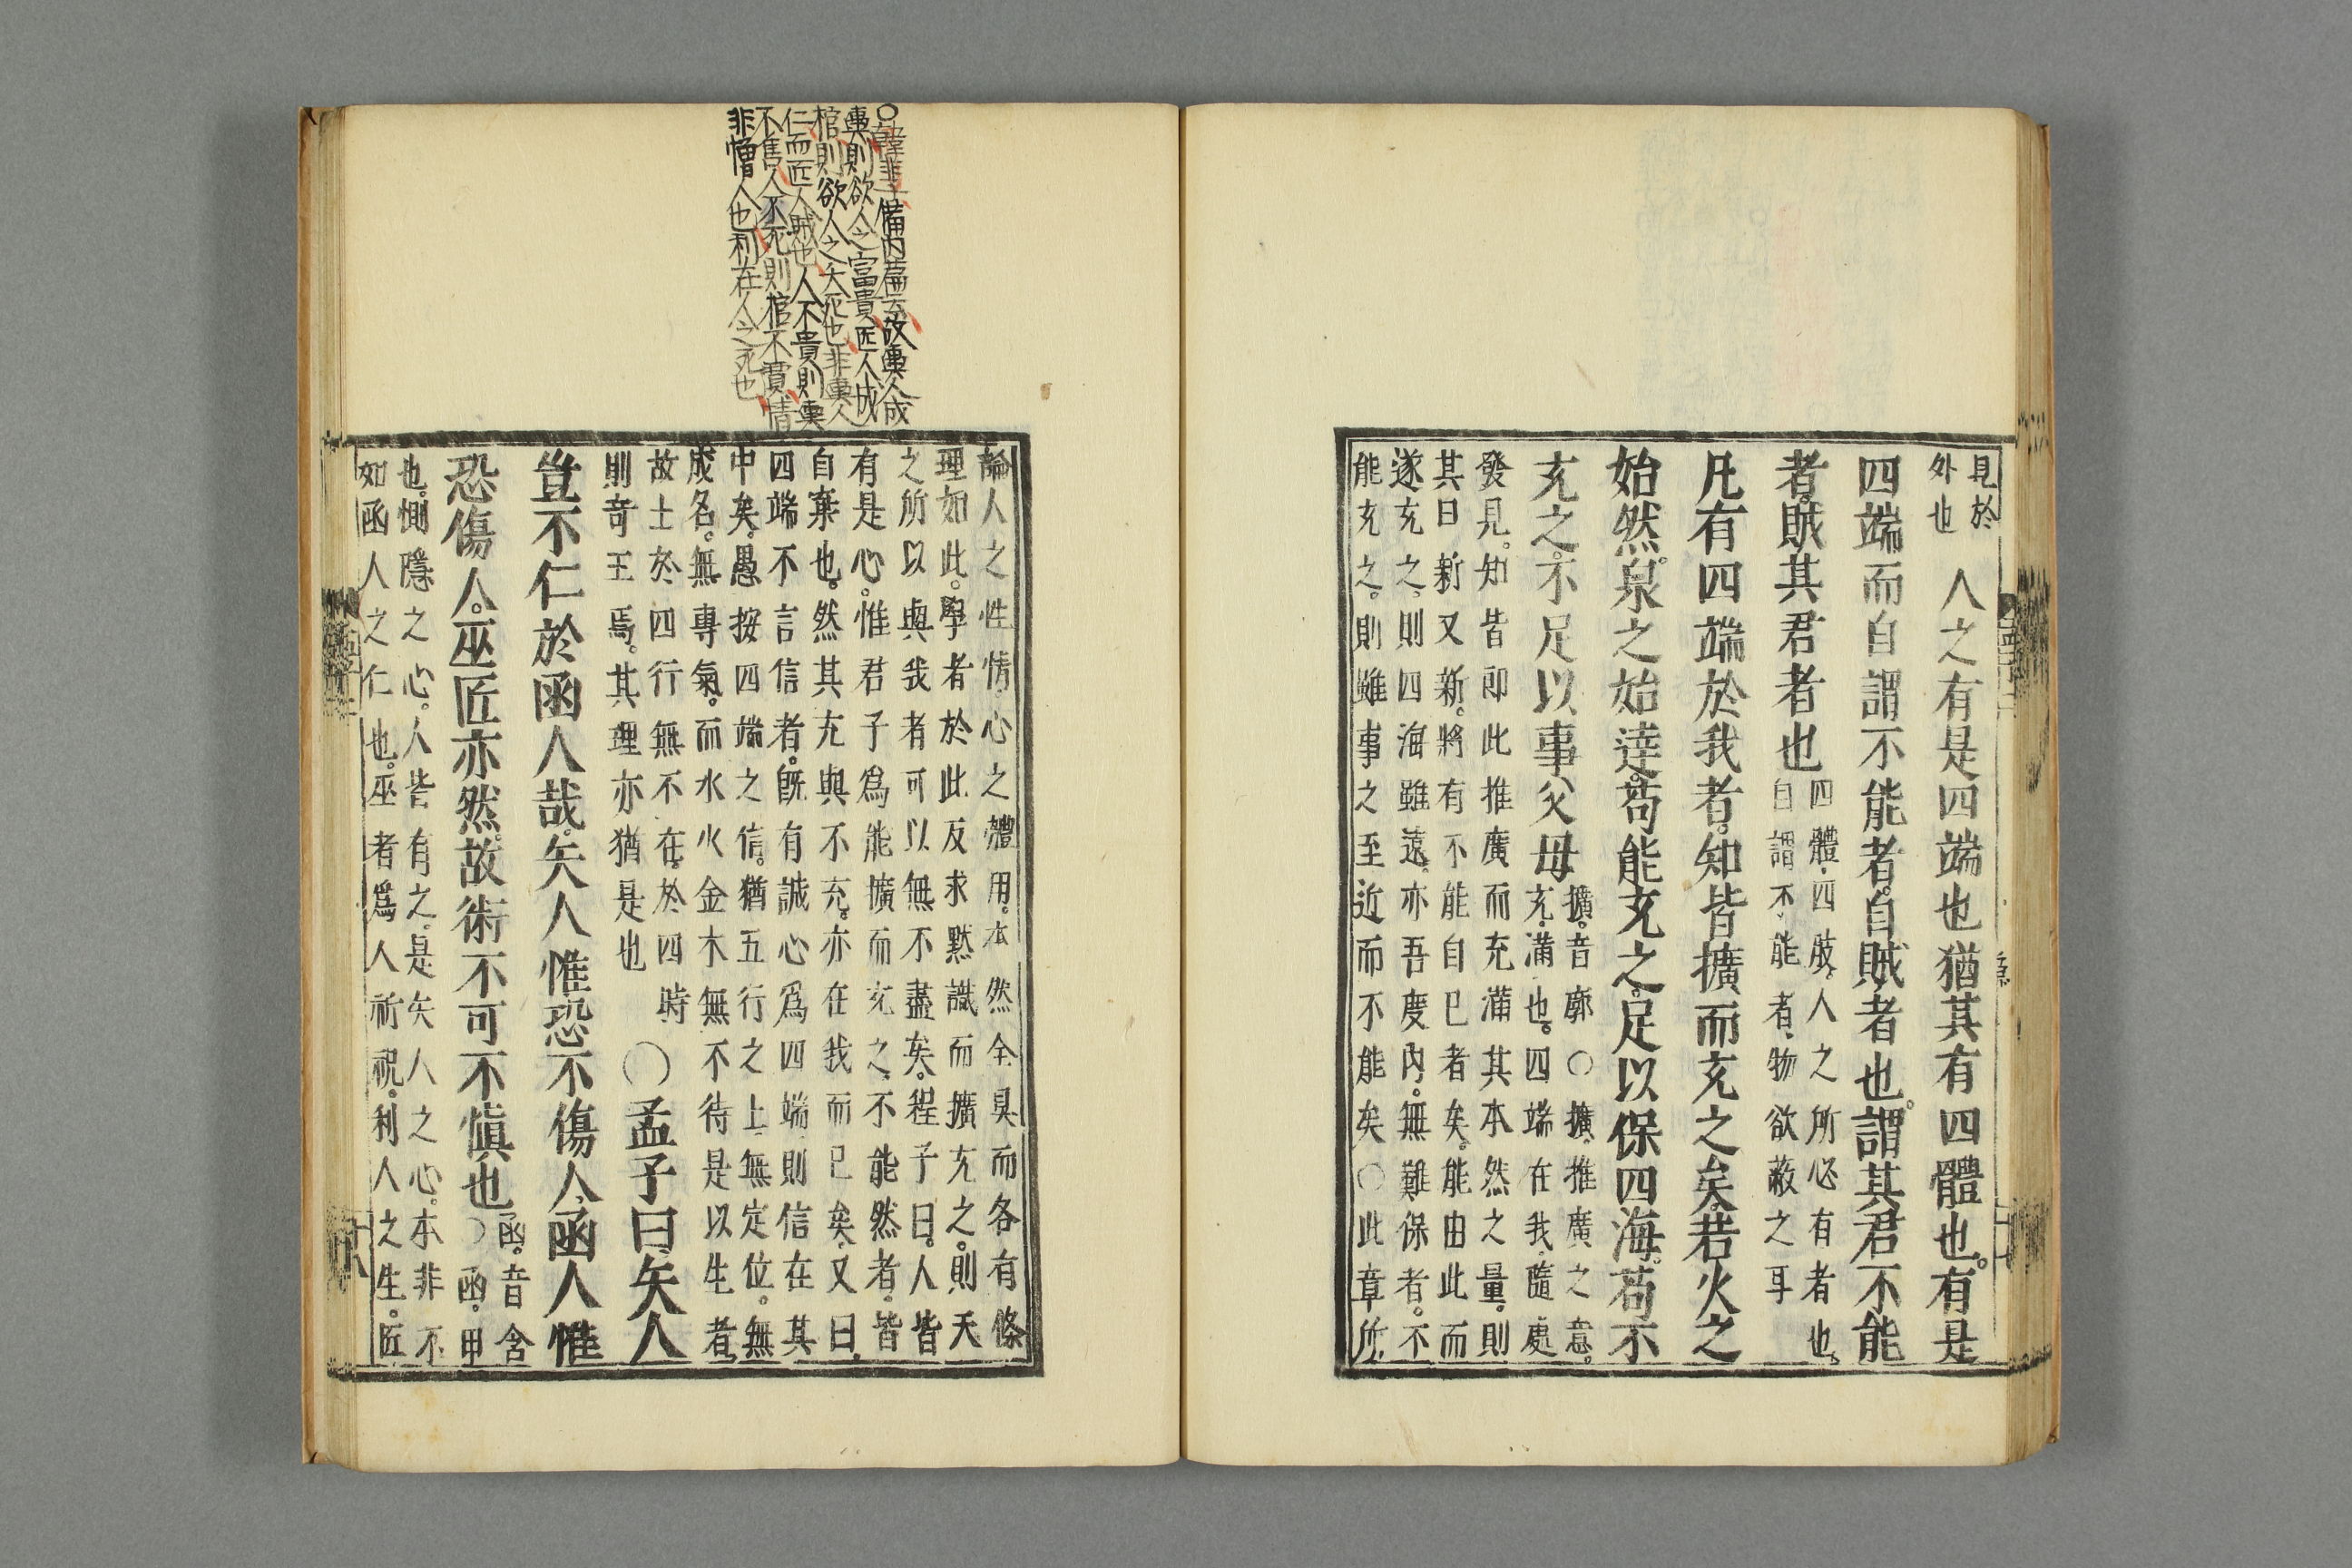 見於
外也
人之有是四端也猶其有四體也。有是
四端而自謂不能者。自賊者也。謂其君不能
者。賊其君者也
四體。四肢。人之所必有者也。
自謂不能者、物欲蔽之耳
凡有四端於我者。知皆擴而充之矣。若火之
始然。泉之始達。苟能充之。足以保四海。苟不
充之。不足以事父母
擴。音廓○擴、推廣之意。
充。滿也。四端在我。隨處
發見。知皆即此推廣而充滿其本然之量。則
其日新又新。將有不能自已者矣。能由此而
遂充之。則四海雖遠。亦吾度內。無難保者。不
能充之。則雖事之至近而不能矣○此章所
論人之性情心之體用。本然全具而各有條
理如此。學者於此反求默識而擴充之。則天
之所以與我者可以無不盡矣。程子曰。人皆
有是心。惟君子爲能擴而充之。不能然者。皆
自棄也。然其充與不充。亦在我而已矣。又曰。
四端不言信者。旣有誠心爲四端則信在其
中矣。愚按四端之信。猶五行之土。無定位。無
成名。無專氣。而水火金木無不待是以生者。
故土於四行無不在。於四時
則寄王焉。其理亦猶是也
○孟子曰矢人
豈不仁於函人哉。矢人惟恐不傷人。函人惟
恐傷人。巫匠亦然。故術不可不愼也
函。音含
○函。甲
也。惻隱之心。人皆有之。是矢人之心。本非不
如函人之仁也。巫者爲人祈祝。利人之生。匠
○韓非子備內篇云故輿人成
輿則欲人之富貴匠人成
棺則欲人之夭死也非輿人
仁而匠人賊也人不貴則輿
不售人不死則棺不買情
非憎人也利在人之死也